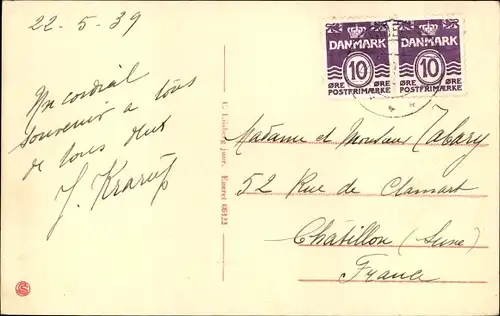 22-5-39
Un cordial
souvenir a tous
de tous deux
J. Krarup
C. Løisberg junr. Eneret 68423
DANMARK
10
ØRE ØRE
POSTFRIMÆRKE
DANMARK
10
ØRE ØRE
POSTFRIMÆRKE
Madame et Monsieur Tabary
52 Rue de Clamart
Châtillon (Seine)
France